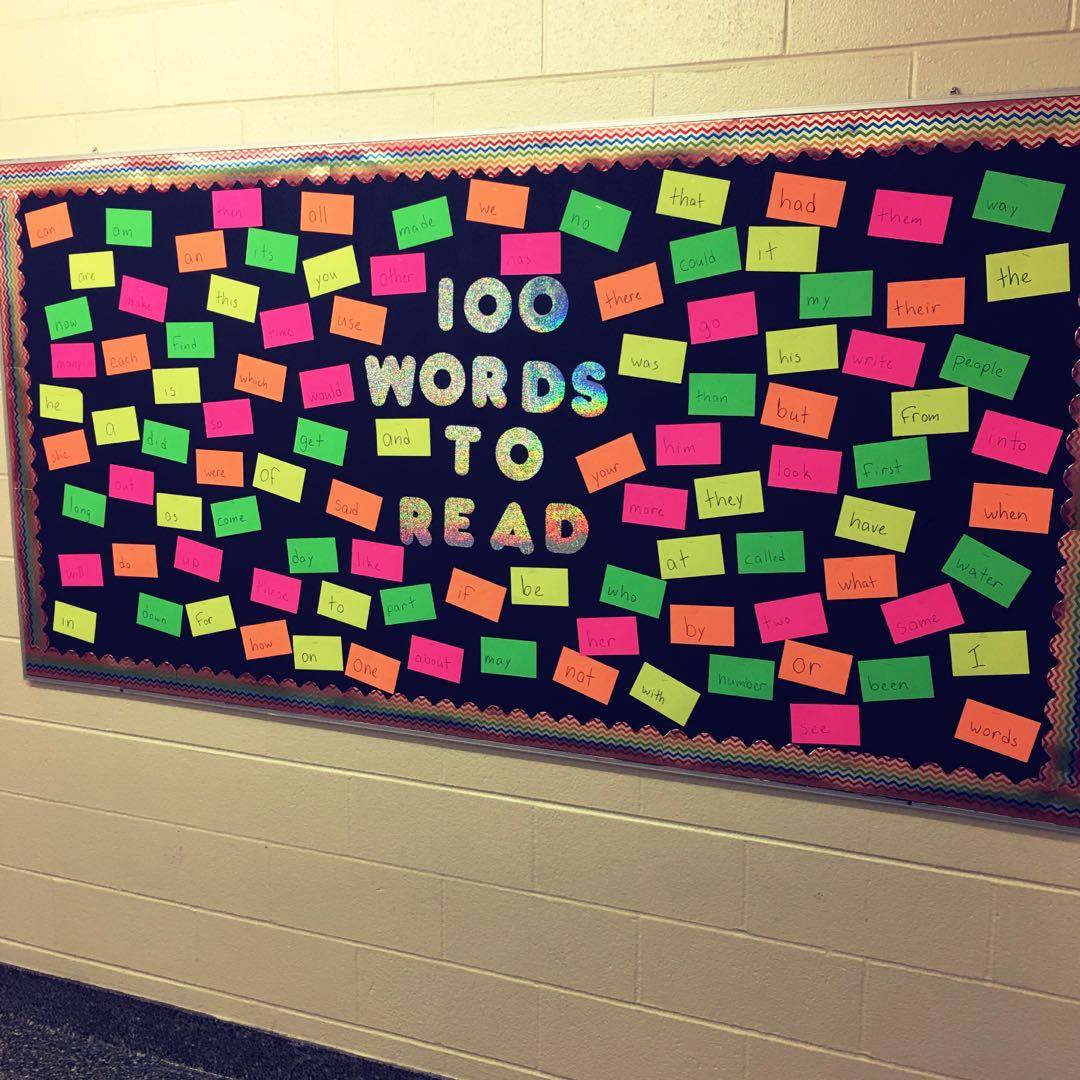 100
WORDS
TO
READ
can
am
then
all
made
we
no
that
had
them
way
an
its
are
you
other
has
could
it
the
make
this
there
my
their
now
time
use
go
many
each
find
was
his
write
people
is
which
would
than
but
from
he
a
so
did
get
and
him
into
she
were
of
your
look
first
out
said
more
they
long
as
come
have
when
will
do
up
day
like
at
called
water
these
to
part
if
be
who
what
in
down
for
her
by
two
some
how
on
one
about
may
not
with
number
or
been
I
see
words